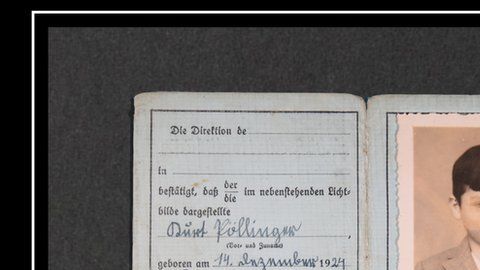 Die Direktion de
in
bestätigt, daß der/die im nebenstehenden Licht-
bilde dargestellte
Kurt Pöllinger,
(Vor- und Zuname)
geboren am 14. Dezember 1927